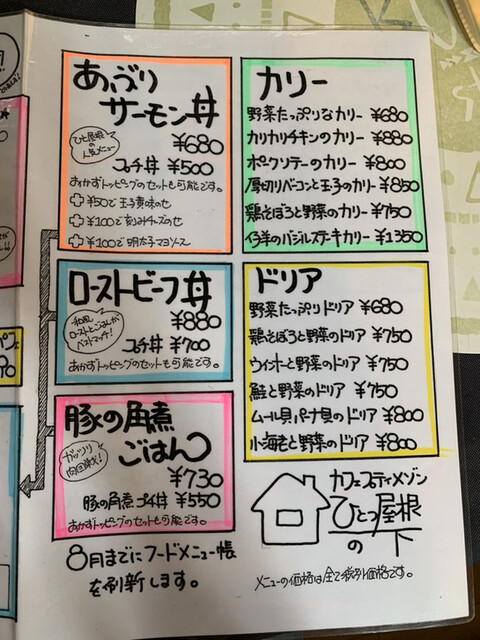 あぶり
サーモン丼
ひと屋根の
人気メニュー
¥680
コプチ丼 ¥500
おかずトッピングのセットも可能です。
＋¥50で玉子黄味のせ
＋¥100で刻みチーズのせ
＋¥100で明太子マヨソース
ローストビーフ丼
¥880
ローストとごはんが
ベストマッチ!
プチ丼 ¥700
おかずトッピングのセットも可能です。
豚の角煮
ごはん
ガッツリ
肉回戦!
¥730
豚の角煮プチ丼 ¥550
おかずトッピングのセットも可能です。
8月までにフードメニュー帳
を刷新します。
カリー
野菜たっぷりなカリー ¥680
カリカリチキンのカリー ¥880
ポークソテーのカリー ¥800
厚切りベーコンと玉子のカリー ¥850
鶏そぼろと野菜のカリー ¥750
仔羊のバジルステーキカリー ¥1350
ドリア
野菜たっぷりドリア ¥680
鶏そぼろと野菜のドリア ¥750
ウインナーと野菜のドリア ¥750
鮭と野菜のドリア ¥750
ムール貝パーナ貝のドリア ¥800
小海老と野菜のドリア ¥800
カフェコミュティメゾン
ひとつ屋根
の下
メニューの価格は全て税別価格です。